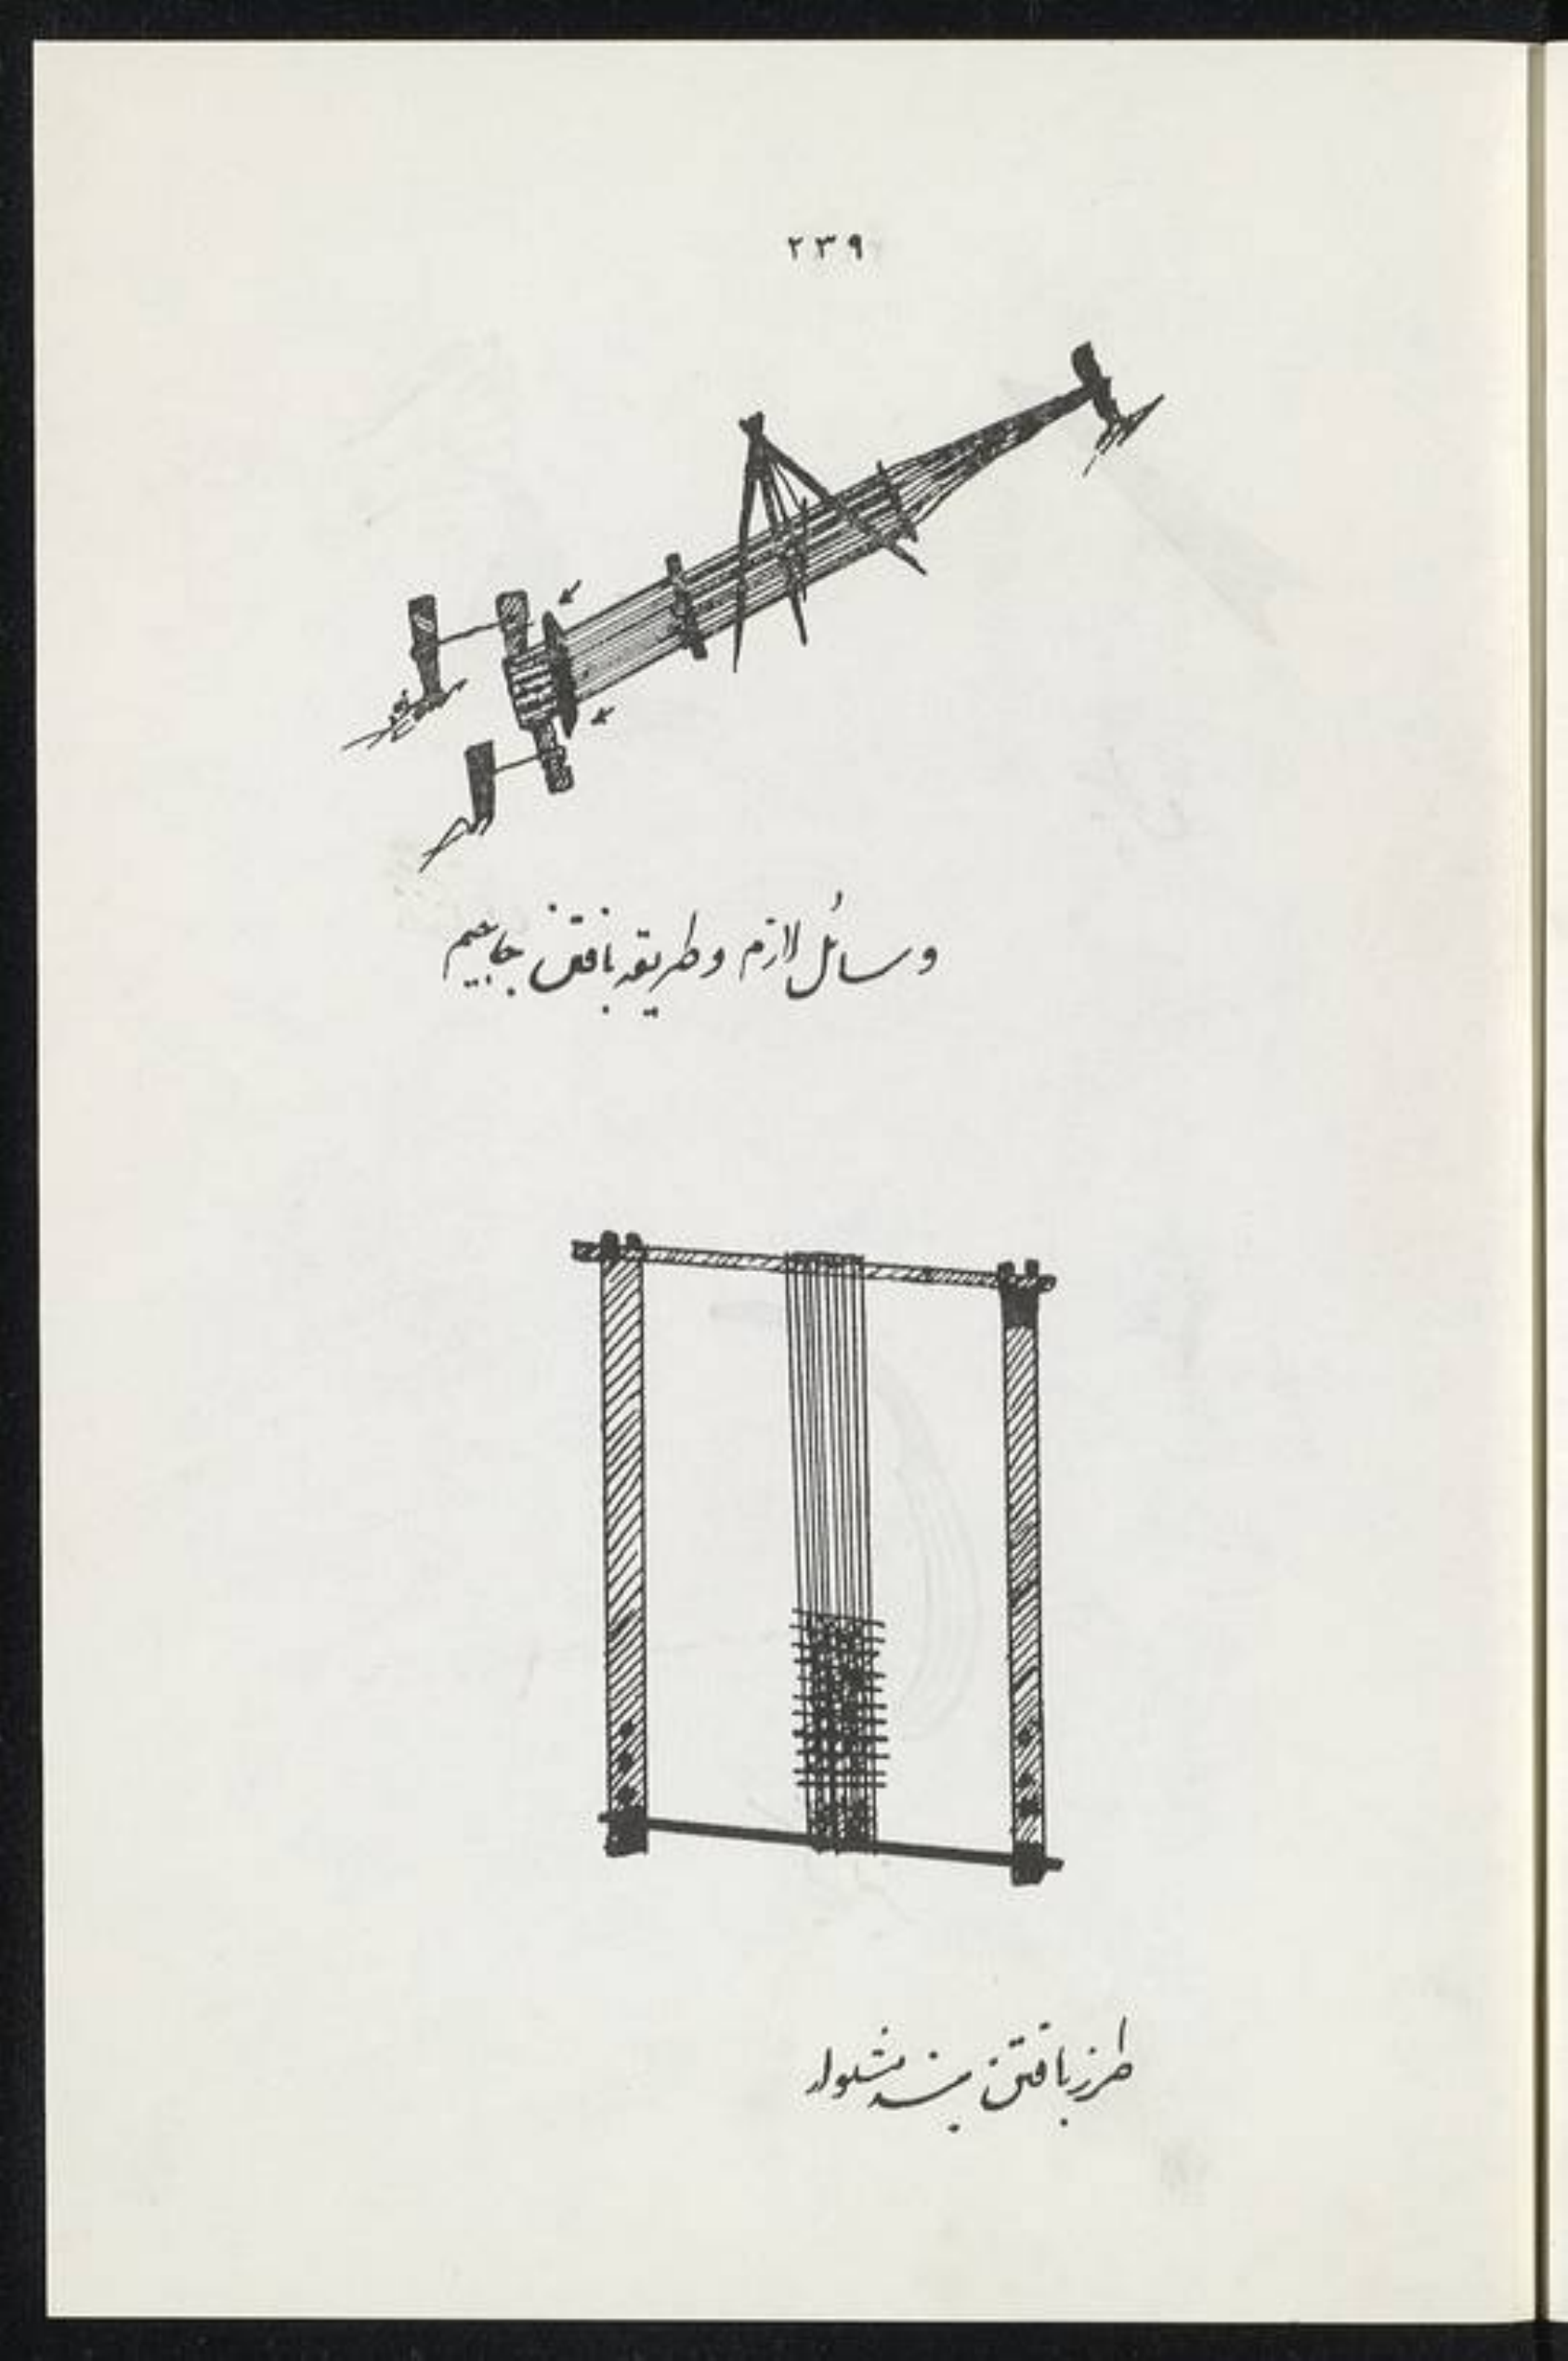 ۲۳۹
وسائل لازم و طریقه بافتن جاجیم
طرز بافتن بند شلوار